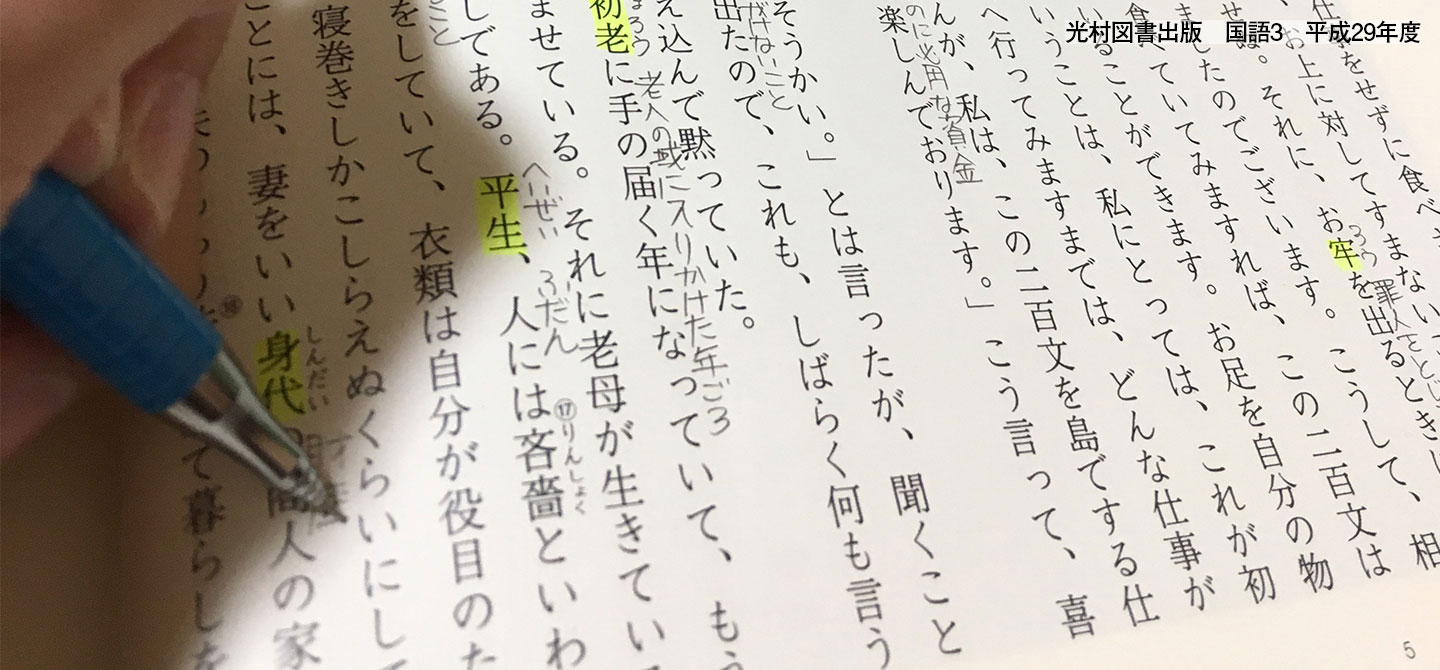 光村図書出版　国語3　平成29年度
仕事をせずに食べ
お上に対してすまない
罪人をとじ
せぬ。それに、お牢を出るときに、相
ろう
ましたのでございます。こうして、
食べていてみますれば、この二百文は
いることができます。お足を自分の物
いうことは、私にとっては、これが初
へ行ってみますまでは、どんな仕事が
んが、私は、この二百文を島でする仕
のに必用な資金
楽しんでおります。」こう言って、喜
そうかい。」とは言ったが、聞くこと
がけないこと
出たので、これも、しばらく何も言う
え込んで黙っていた。
老人の域に入りかけた年ごろ
初老に手の届く年になっていて、もう
ませている。それに老母が生きてい
へいぜい
ふだん
⑰りんしょく
してある。平生、人には吝嗇といわ
をしていて、衣類は自分が役目のた
寝巻きしかこしらえぬくらいにして
しんだい
ことには、妻をいい身代の商人の家
⑱
て暮らしを
5